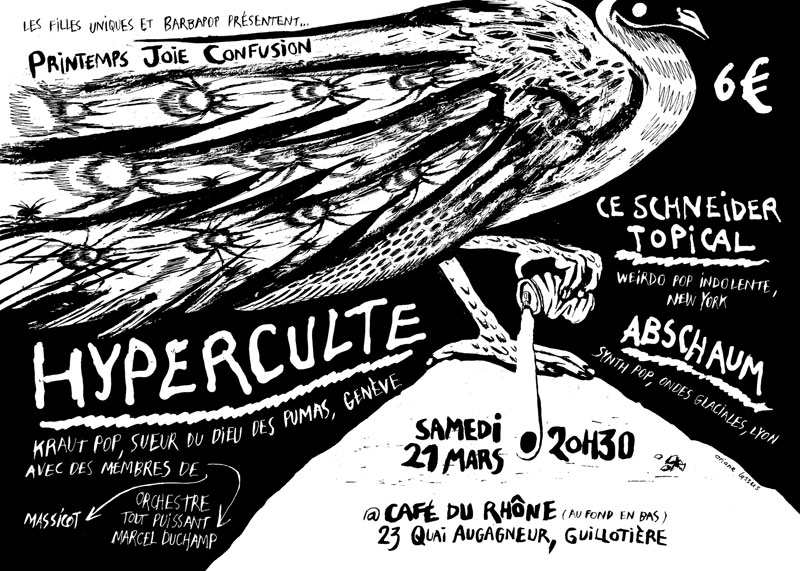 LES FILLES UNIQUES ET BARBAPOP PRÉSENTENT...
PRINTEMPS JOIE CONFUSION
6€
CE SCHNEIDER
TOPICAL
WEIRDO POP INDOLENTE,
NEW YORK
ABSCHAUM
SYNTH POP, ONDES GLACIALES, LYON
HYPERCULTE
KRAUT POP, SUEUR DU DIEU DES PUMAS, GENÈVE
AVEC DES MEMBRES DE
MASSICOT
ORCHESTRE
TOUT PUISSANT
MARCEL DUCHAMP
SAMEDI
21 MARS
20H30
@ CAFÉ DU RHÔNE (AU FOND EN BAS)
23 QUAI AUGAGNEUR, GUILLOTIÈRE